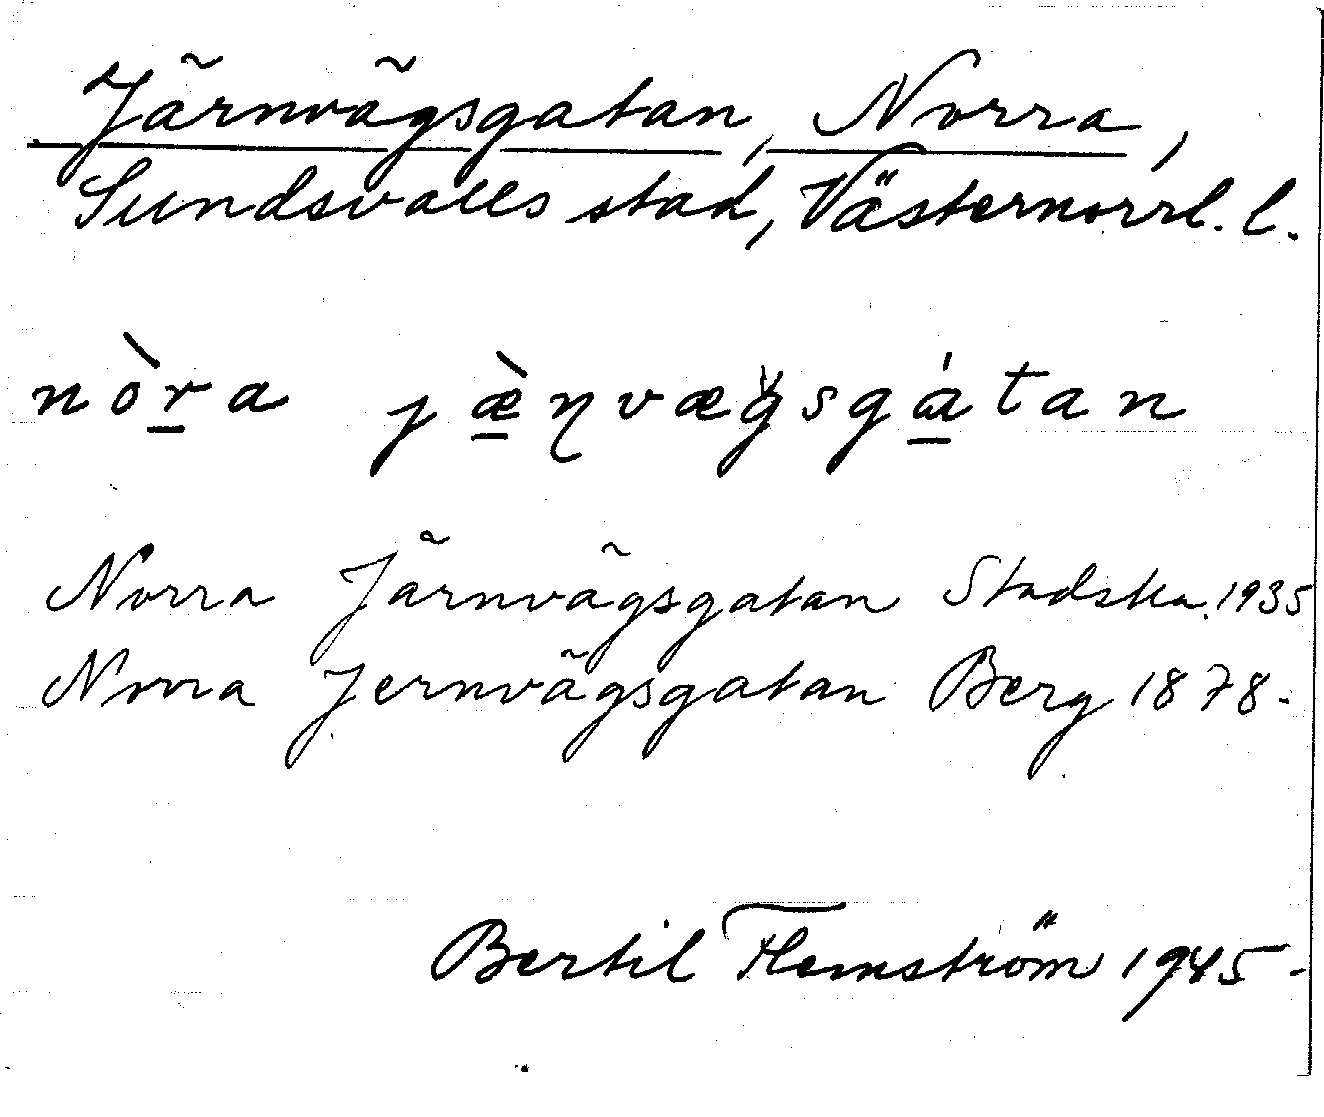 Järnvägsgatan, Norra,
Sundsvalls stad, Västernorrl. l.
nòra jæ̀ɳvægsgátan
Norra Järnvägsgatan Stadska. 1935
Norra Jernvägsgatan Berg 1878.
Bertil Flemström 1945.